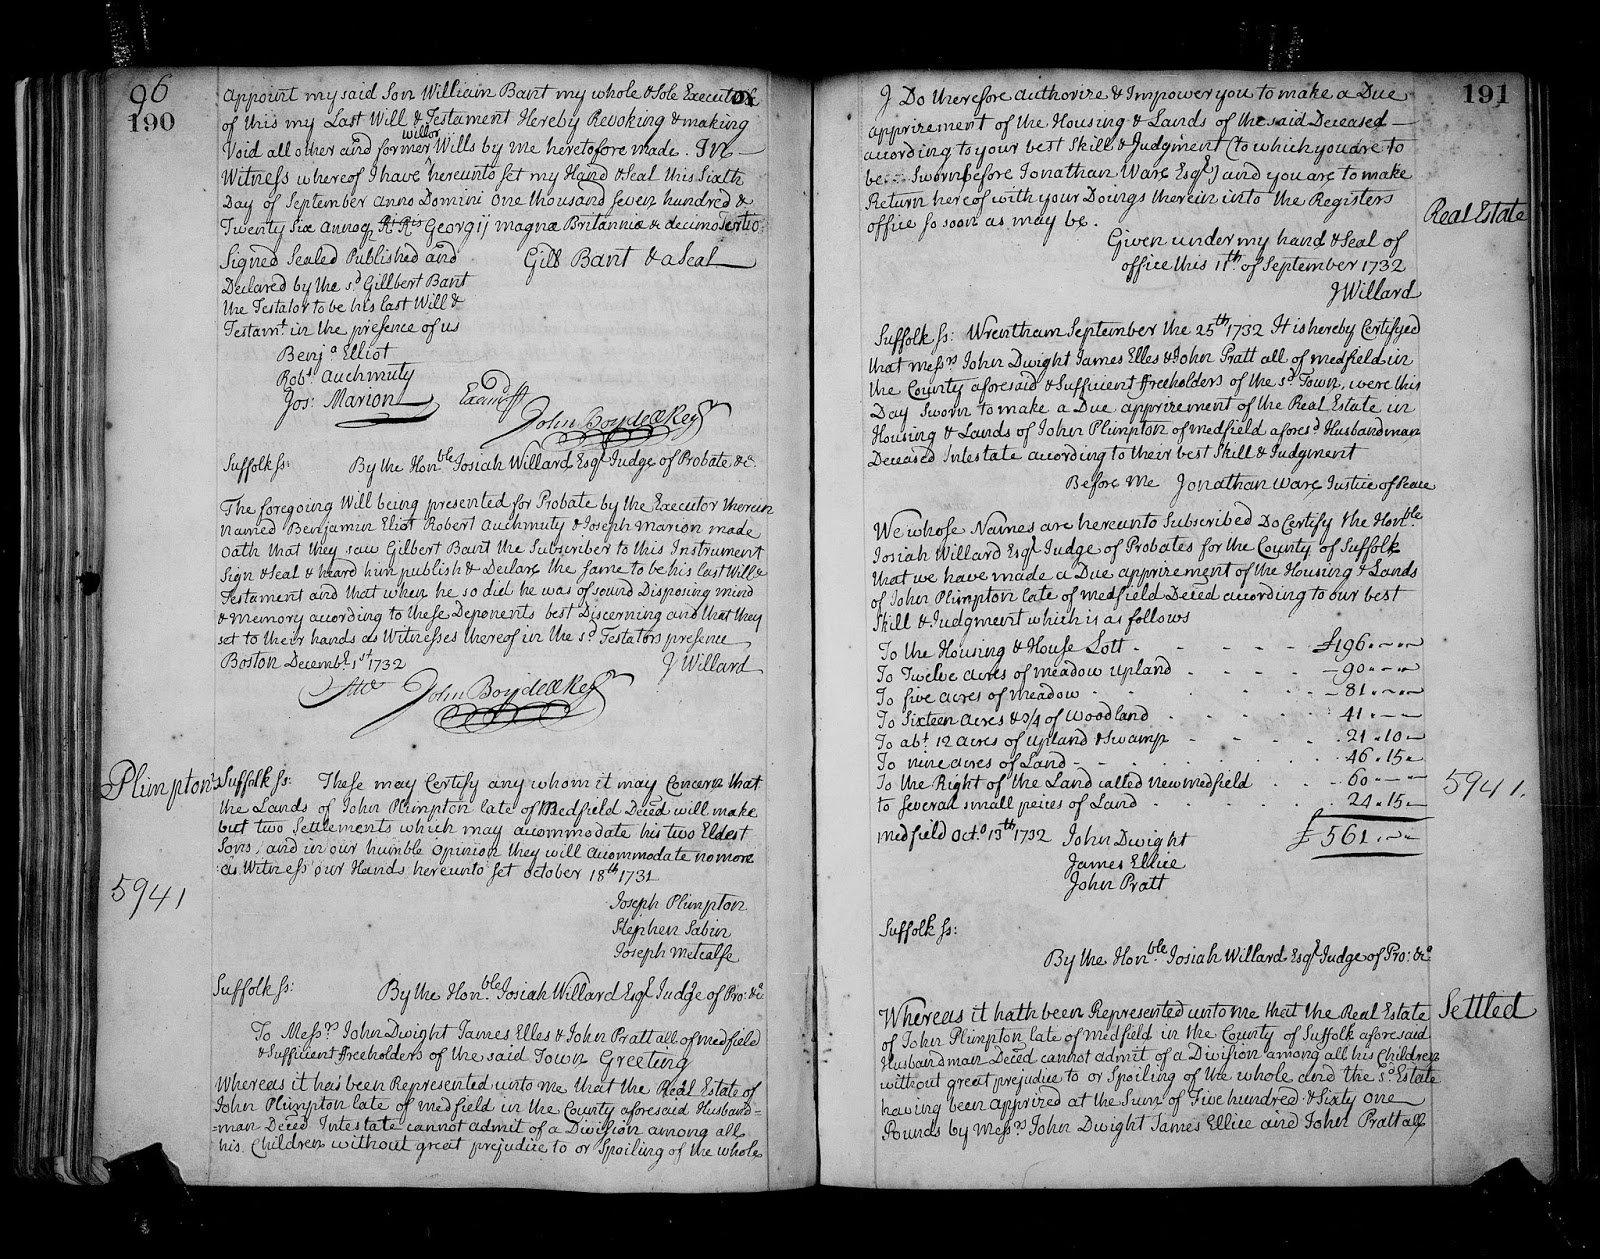 96
190
appoint my said Son William Bant my whole & Sole Executor
of this my Last Will & Testament Hereby Revoking & making
Void all other and former Wills by me heretofore made. In
willor
Witness whereof I have hereunto set my Hand & Seal this Sixth
Day of September Anno Domini One thousand seven hundred &
Twenty Six Annoq R: Rs Georgij magnæ Britanniæ & decimo tertio
Signed Sealed Published and
Declared by the sd Gillbert Bant
the Testator to be his last Will &
Testamt in the presence of us
Gill Bant & a Seal
Benja Elliot
Robt Auchmuty
Jos: Marion
Examd
John Boydell Regr
Suffolk ss: By the Honble Josiah Willard Esqr Judge of Probate &c
The foregoing Will being presented for Probate by the Executor therein
named Benjamin Eliot Robert Auchmuty & Joseph Marion made
Oath that they saw Gilbert Bant the Subscriber to this Instrument
Sign & Seal & heard him publish & Declare the same to be his last Will &
Testament and that when he so did he was of sound Disposing mind
& memory according to these Deponents best Discerning and that they
set to their hands as Witnesses thereof in the sd Testators presence
Boston Decembr 1st 1732 J Willard
Attr John Boydell Regr
Plimpton's
Suffolk ss: These may Certify any whom it may Concern that
the Lands of John Plimpton late of Medfield Deced will make
but two Settlements which may accommodate his two Eldest
Sons, and in our humble Opinion they will accommodate no more
as Witness our Hands hereunto set October 18th 1731
5941
Joseph Plimpton
Stephen Sabin
Joseph Metcalfe
Suffolk ss: By the Honble Josiah Willard Esqr Judge of Pro: &c
To Messrs John Dwight James Elles & John Pratt all of medfield
& Sufficient ffreeholders of the said Town Greeting
Whereas it has been Represented unto me that the Real Estate of
John Plimpton late of medfield in the County aforesaid Husband=
=man Deced Intestate cannot admit of a Division among all
his Children without great prejudice to or Spoiling of the whole
191
I Do therefore authorize & Impower you to make a Due
apprizement of the Housing & Lands of the said Deceased
according to your best Skill & Judgment (to which you are to
be Sworn before Jonathan Ware Esqr) and you are to make
Return hereof with your Doings therein into the Registers
office so soon as may be.
Real Estate
Given under my hand & Seal of
office this 11th of September 1732
J Willard
Suffolk ss: Wrentham September the 25th 1732 It is hereby Certifyed
that messrs John Dwight James Elles & John Pratt all of medfield in
the County aforesaid & Sufficient ffreeholders of the sd Town, were this
Day Sworn to make a Due apprizement of the Real Estate in
Housing & Lands of John Plimpton of medfield aforesd Husbandman
Deceased Intestate according to their best Skill & Judgment
Before Me Jonathan Ware Justice of Peace
We whose Names are hereunto Subscribed Do Certify the Honble
Josiah Willard Esqr Judge of Probates for the County of Suffolk
that we have made a Due apprizement of the Housing & Lands
of John Plimpton late of medfield Deced according to our best
Skill & Judgment which is as follows
To the Housing & House Lott £196.--
To Twelve acres of meadow upland 90.--
To five acres of meadow 81.--
To Sixteen Acres & 3/4 of Woodland 41.--
To abt 12 acres of upland & Swamp 21.10
To nine acres of Land 46.15
To the Right of the Land called new medfield 60.--
to several small peices of Land 24.15
5941.
medfield Octo 13th 1732 John Dwight £561.--
James Ellice
John Pratt
Suffolk ss:
By the Honble Josiah Willard Esqr Judge of Pro: &c
Whereas it hath been Represented unto me that the Real Estate
Settled
of John Plimpton late of medfield in the County of Suffolk aforesaid
Husbandman Deced cannot admit of a Division among all his Children
without great prejudice to or Spoiling of the whole and the sd Estate
having been apprized at the Sum of Five hundred & Sixty one
Pounds by Messrs John Dwight James Ellice and John Pratt all